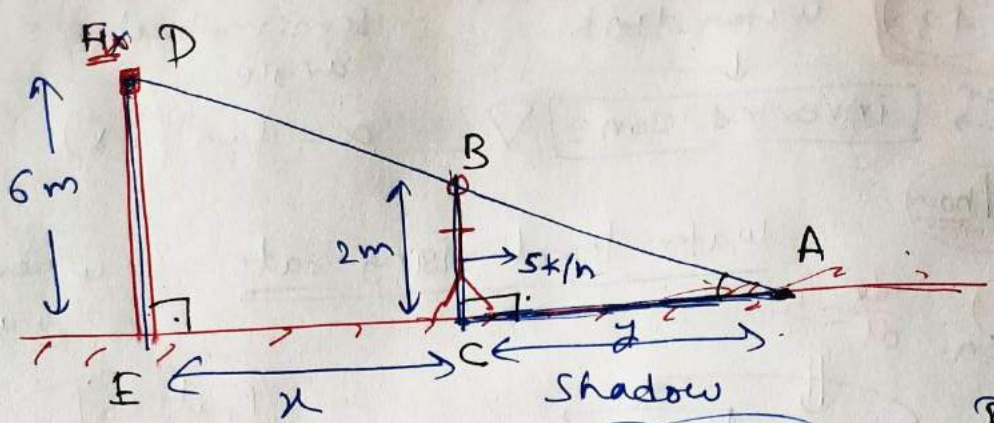 Fix D
B
6 m
2m
5k/h
A
E
x
C
y
Shadow